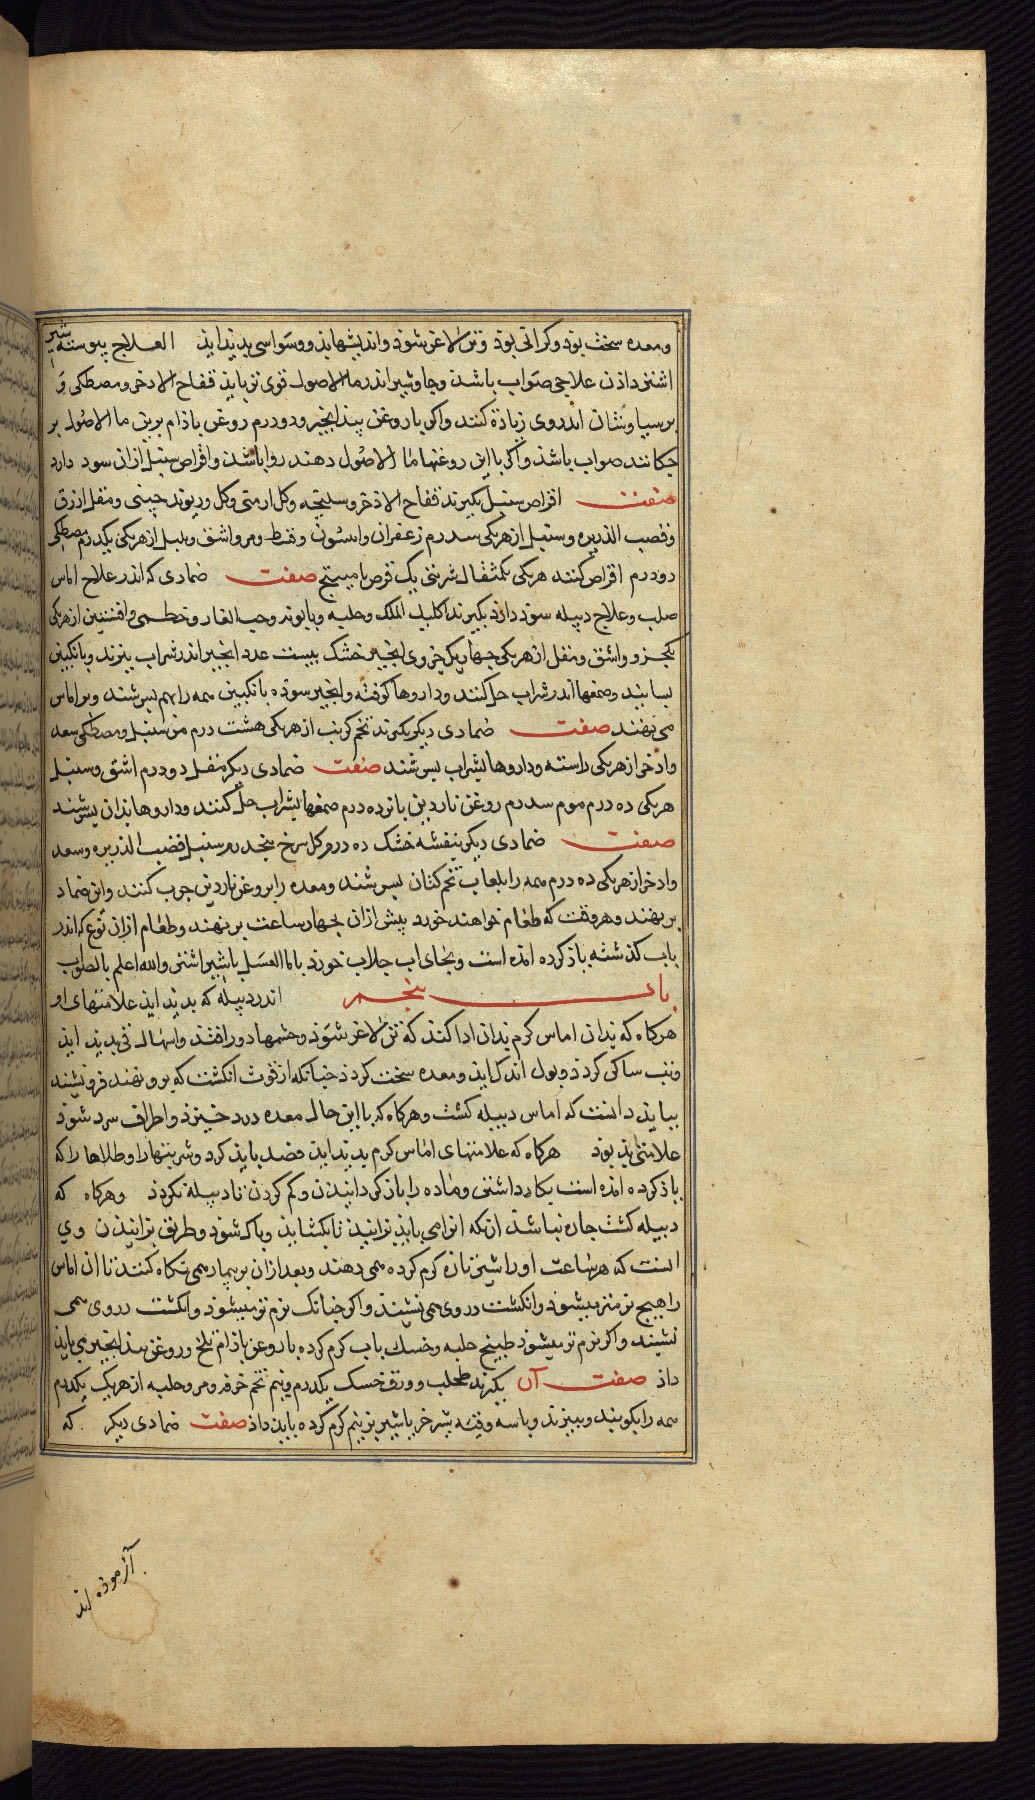 ومعده سخت بوذ وکرانی بوذ وتن لاغر شوذ واندیشهاء بذ ووسواسی پدید ایذ العلاج پیوسته شیر
اشتر داذن علاجی صواب باشذ وجاوشیر اندر ما الاصول قوی تر بایذ فقاح الاذخر ومصطکی و
برسیاوشان اندروی زیاذه کنند واکر با روغن بیذ انجیر ودو درم روغن باذام برین ما الاصول بر
جکانند صواب باشذ واکر با این روغنها ما الاصول دهند روا باشذ واقراص سنبل ازان سود دارد
صفت اقراص سنبل بکیرند فقاح الاذخر وسلیخه وکل ارمنی وکل وریوند چینی ومقل ازرق
وقصب الذریره وسنبل از هریکی سدرم زعفران وانیسون وقسط ومر واشق وبلبل از هریکی یکدرم مصطکی
دودرم اقراص کنند هریکی یکمثقال شربتی یک قرص با میبختج صفت ضمادی که اندر علاج اماس
صلب وعلاج دبیله سوذ دارذ بکیرند اکلیل الملک وحلبه وبابونه وحب الغار وخطمی وافسنتین از هریکی
یکجزو واشق ومقل از هریکی چهاریک جزوی انجیر خشک بیست عدد انجیر اندر شراب بپزند وبانکبین
بسایند وصمغها اندر شراب حل کنند وداروها کوفته وانجیر سوذه بانکبین همه را بهم بسرشند وبر اماس
می نهند صفت ضمادی دیکر بکیرند تخم کرنب از هریکی هشت درم سنبل ومصطکی وسعد
واذخر از هریکی راسته وداروها بشراب بسرشند صفت ضمادی دیکر مقل دودرم اشق وسنبل
هریکی ده درم موم سدرم روغن ناردین پانزده درم صمغها بشراب حل کنند وداروها بذان بسرشند
صفت ضمادی دیکر بنفشه خشک ده درم وکل سرخ پنجدرم سنبل قصب الذریره وسعد
واذخر از هریکی ده درم همه را بلعاب تخم کتان بسرشند ومعده را بروغن ناردین چرب کنند واین ضماد
بر نهند وهر وقت که طعام خواهند خورد پیش ازان بچهار ساعت بر نهند وطعام ازان نوع که اندر
باب کذشته یاذ کرده امده است وبجای اب جلاب خورذ یا ما العسل یا شیر اشتر والله اعلم بالصواب
باب پنجم اندر دبیله که پدید ایذ علامتهای او
هرکاه که بذان اماس کرم بذان ادا کند که تن لاغر شوذ وچشمها دور افتذ واسهال وقی پدید ایذ
وتب ساکن کردذ وبول اندک ایذ ومعده سخت کردذ چنانکه از قوت انکشت که برو نهند فرو نشیند
ببایذ دانست که اماس دبیله کشت وهرکاه که با این حال معده درد خیزذ واطراف سرد شوذ
علامتی بذ بوذ هرکاه که علامتهای اماس کرم پدید ایذ فصد بایذ کرد وشربتها وطلاها را که
یاذ کرده امده است بکار داشتن وماده را باز کردانیدن وکم کردن تا دبیله نکردذ وهرکاه که
دبیله کشت چاره نباشذ ازانکه انرا می بایذ پزانیذ تا بکشایذ وپاک شوذ وطریق پزانیدن وی
انست که هر ساعت او را شیر تازه کرم کرده می دهند وبعد ازان بر بیمار می نکاه کنند تا ان اماس
را هیچ نرم تر میشوذ وانکشت در وی می نشیند واکر چنانک نرم تر میشوذ وانکشت در وی می
نشیند واکر نرم تر میشوذ طبیخ حلبه وخسک باب کرم کرده با روغن باذام تلخ وروغن بیذ انجیر می بایذ
داذ صفت آن بکیرند طحلب وورق خسک یکدرم ونیم تخم خرفه ومرو وحلبه از هریک یکدرم
همه را بکوبند وببیزند وبا سه وقیه شیر خر یا شیر بز نیم کرم کرده بایذ داذ صفت ضمادی دیکر که
آزموذه اند